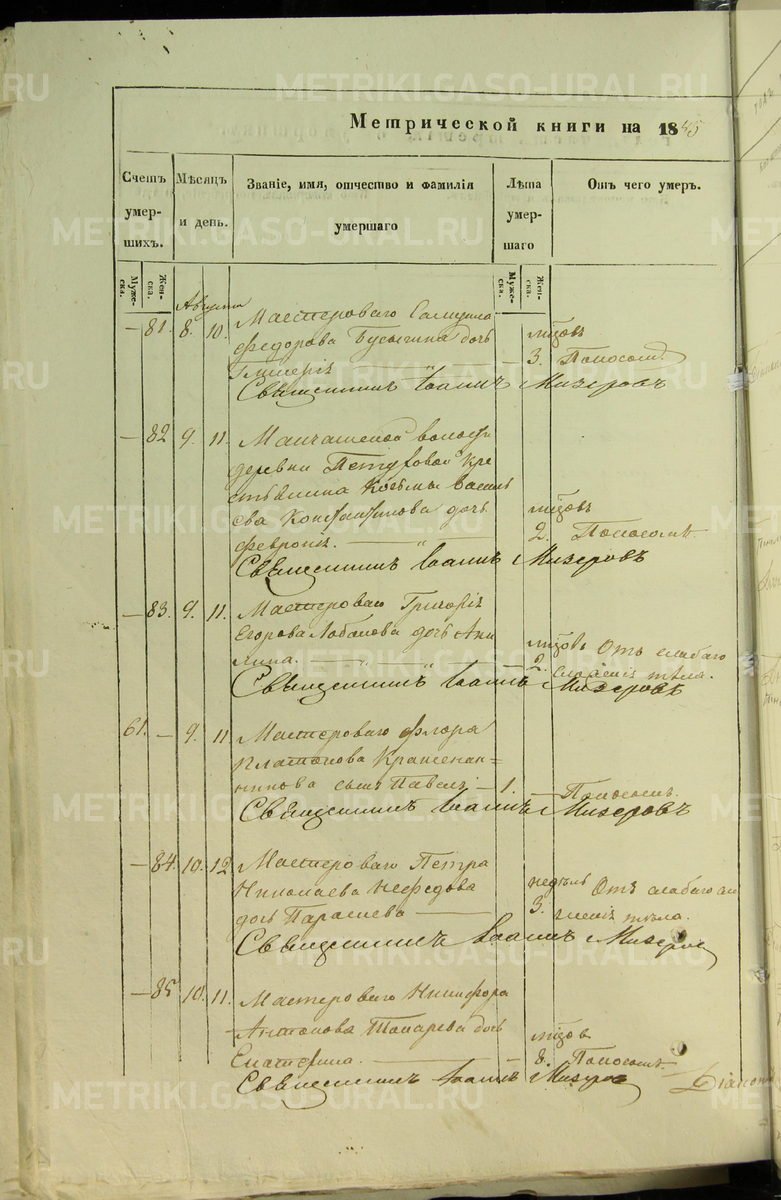 Метрической книги на 1845
Счетъ умер-шихъ.
Мѣсяцъ и день.
Званіе, имя, отчество и фамилія умершаго
Лѣта умер-шаго
Отъ чего умеръ.
Муже-ска.
Жен-ска.
Муже-ска.
Жен-ска.
Августа
— 81. 8. 10. Мастероваго
Федорова Бусыгина дочь
Гликерія — 3. Поносомъ.
Священникъ Іоаннъ Мизеровъ
— 82 9. 11. волости
деревни кре
стьянина Козьмы Василь
ева Константинова дочь
Февронія. — 2. Поносомъ
Священникъ Іоаннъ Мизеровъ
— 83. 9. 11. Мастероваго Григорія
Егорова Лобанова дочь Аки
лина. — Отъ слабаго
сложенія тѣла.
Священникъ Іоаннъ Мизеровъ
61. — 9. 11. Мастероваго Флора
Платонова Крашенин-
никова сынъ Павелъ — 1. — Поносомъ.
Священникъ Іоаннъ Мизеровъ
— 84. 10. 12 Мастероваго Петра
Николаева Нефедова недѣль Отъ слабаго сло
дочь Параскева — 3. женія тѣла.
Священникъ Іоаннъ Мизеровъ
— 85 10. 11. Мастероваго Никифора
Антонова Токарева дочь
Екатерина. — 8. Поносомъ.
Священникъ Іоаннъ Мизеровъ
METRIKI.GASO-URAL.RU